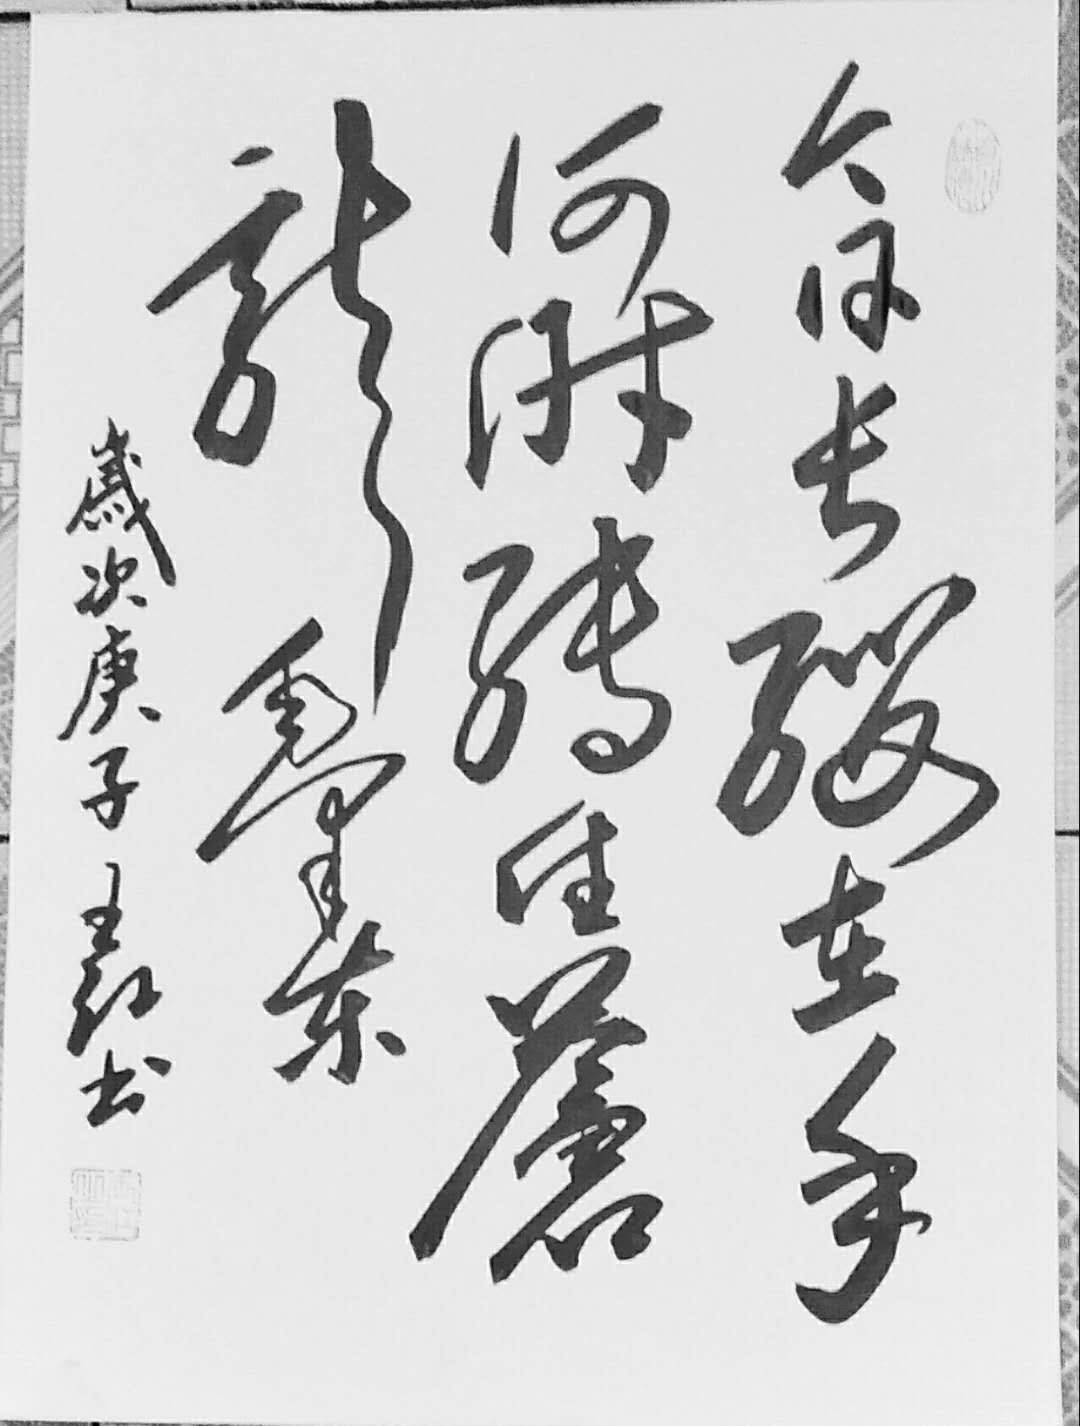 今日长缨在手
何时缚住苍
龙 毛泽东
岁次庚子 王红书